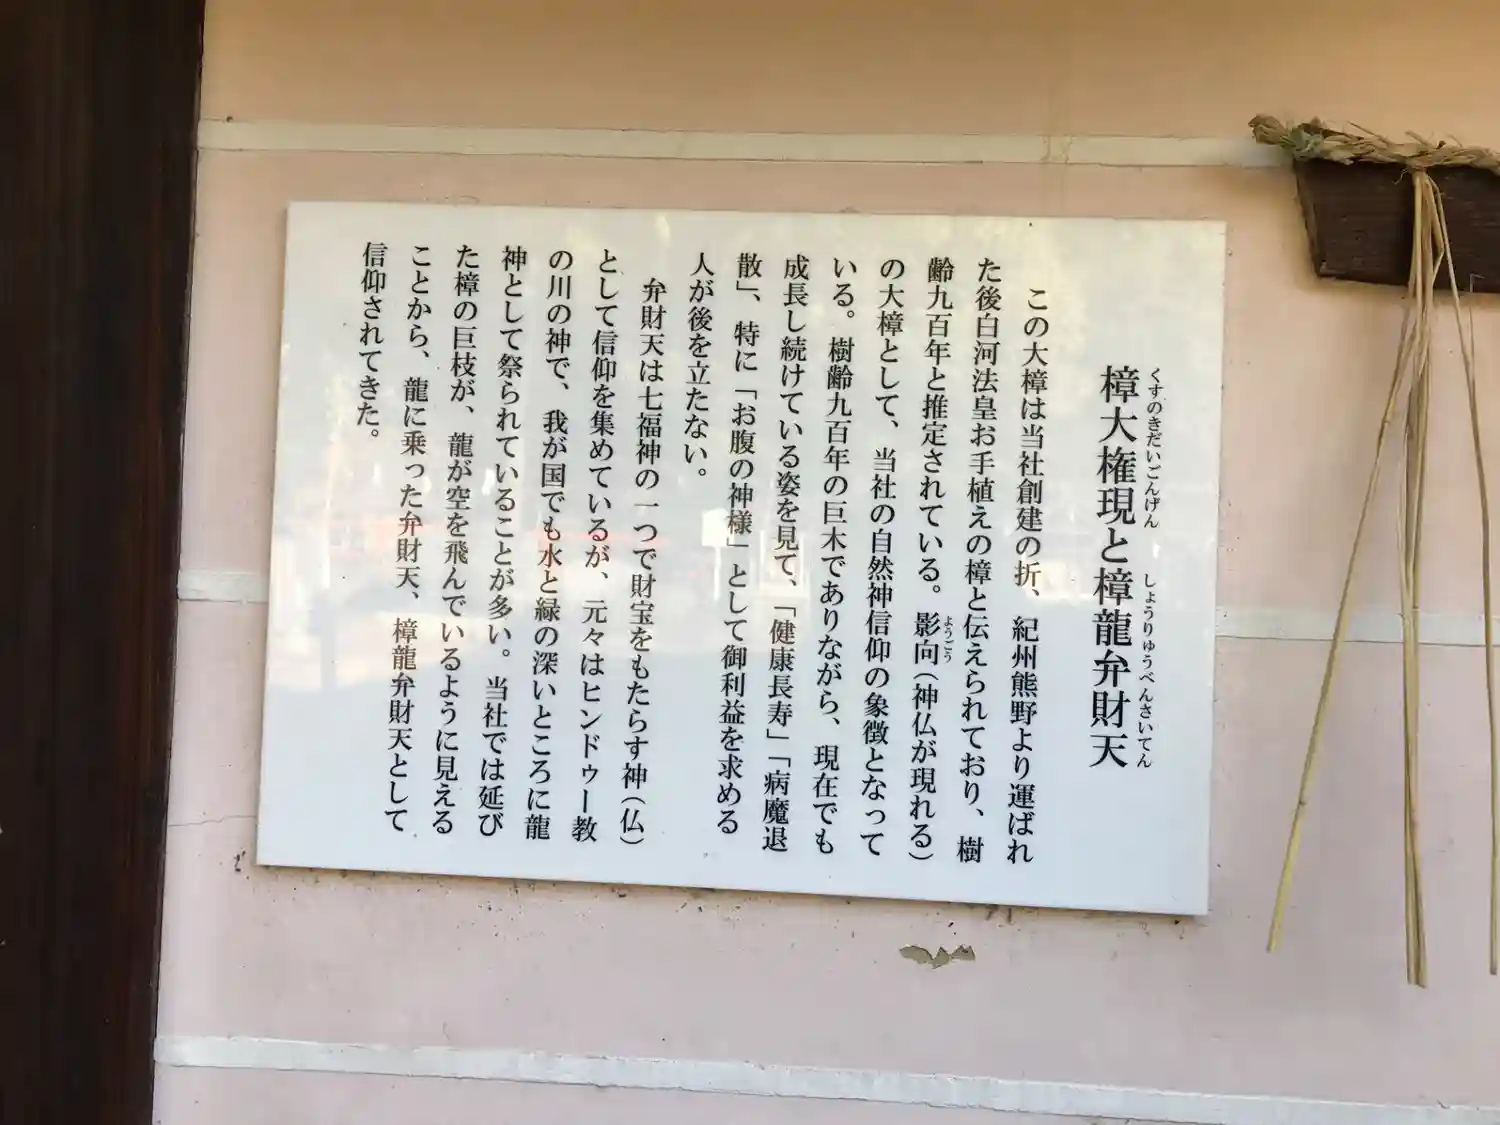 樟大権現と樟龍弁財天
くすのきだいごんげん しょうりゅうべんさいてん
この大樟は当社創建の折、紀州熊野より運ばれ
た後白河法皇お手植えの樟と伝えられており、樹
齢九百年と推定されている。影向（神仏が現れる）
ようごう
の大樟として、当社の自然神信仰の象徴となって
いる。樹齢九百年の巨木でありながら、現在でも
成長し続けている姿を見て、「健康長寿」「病魔退
散」、特に「お腹の神様」として御利益を求める
人が後を立たない。
弁財天は七福神の一つで財宝をもたらす神（仏）
として信仰を集めているが、元々はヒンドゥー教
の川の神で、我が国でも水と緑の深いところに龍
神として祭られていることが多い。当社では延び
た樟の巨枝が、龍が空を飛んでいるように見える
ことから、龍に乗った弁財天、樟龍弁財天として
信仰されてきた。